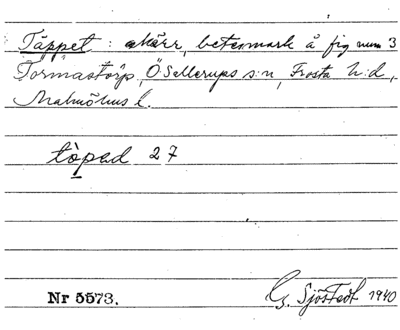 Täppet: åkärr, betesmark å fig num 3
Tormastorp, Ö Sallerups s:n, Frosta h:d,
Malmöhus l.
tòped 27
Nr 5573.
G. Sjöstedt 1940